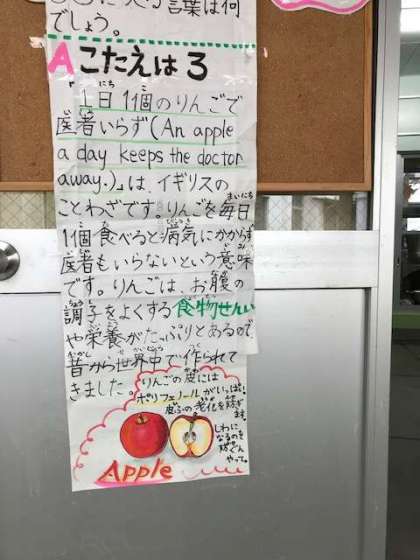 言葉は何
でしょう。
A こたえは 3
「1日1個のりんごで
医者いらず(An apple
a day keeps the doctor
away.)」は、イギリスの
ことわざです。りんごを毎日
1個食べると病気にかからず
医者もいらないという意味
です。りんごは、お腹の
調子をよくする食物せんい
や栄養がたっぷりとあるので
昔から世界中で作られて
きました。
りんごの皮には
ポリフェノールがいっぱい!
皮ふの老化を防ぎ
ます。
しわに
なるのを
防ぐん
やって。
Apple